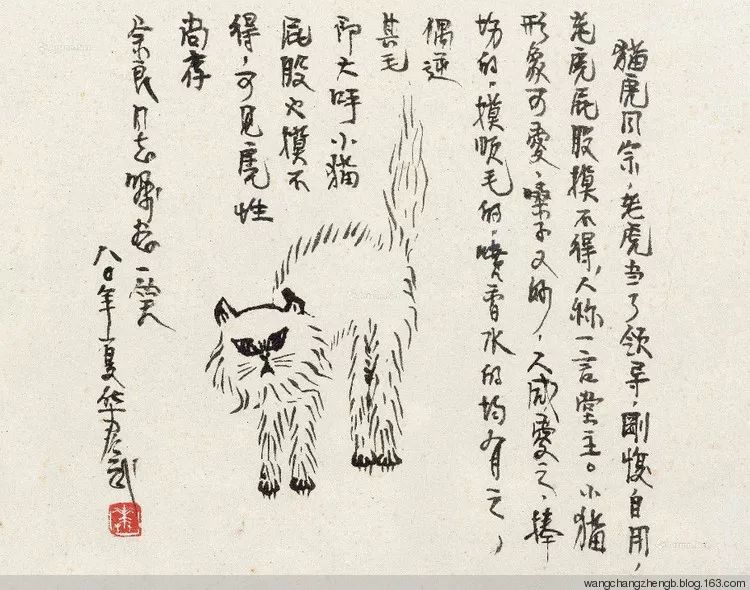 貓虎同宗，老虎当了领导，剛愎自用，
老虎屁股摸不得，人称一言堂主。小貓
形象可愛、嗓子又妙，人咸愛之、捧
场的、摸顺毛的、喷香水的均有之，
偶逆
其毛
即大呼小貓
屁股也摸不
得，可見虎性
尚存
宗良同志一笑
八〇年夏华君武
wangchangzhengb.blog.163.com